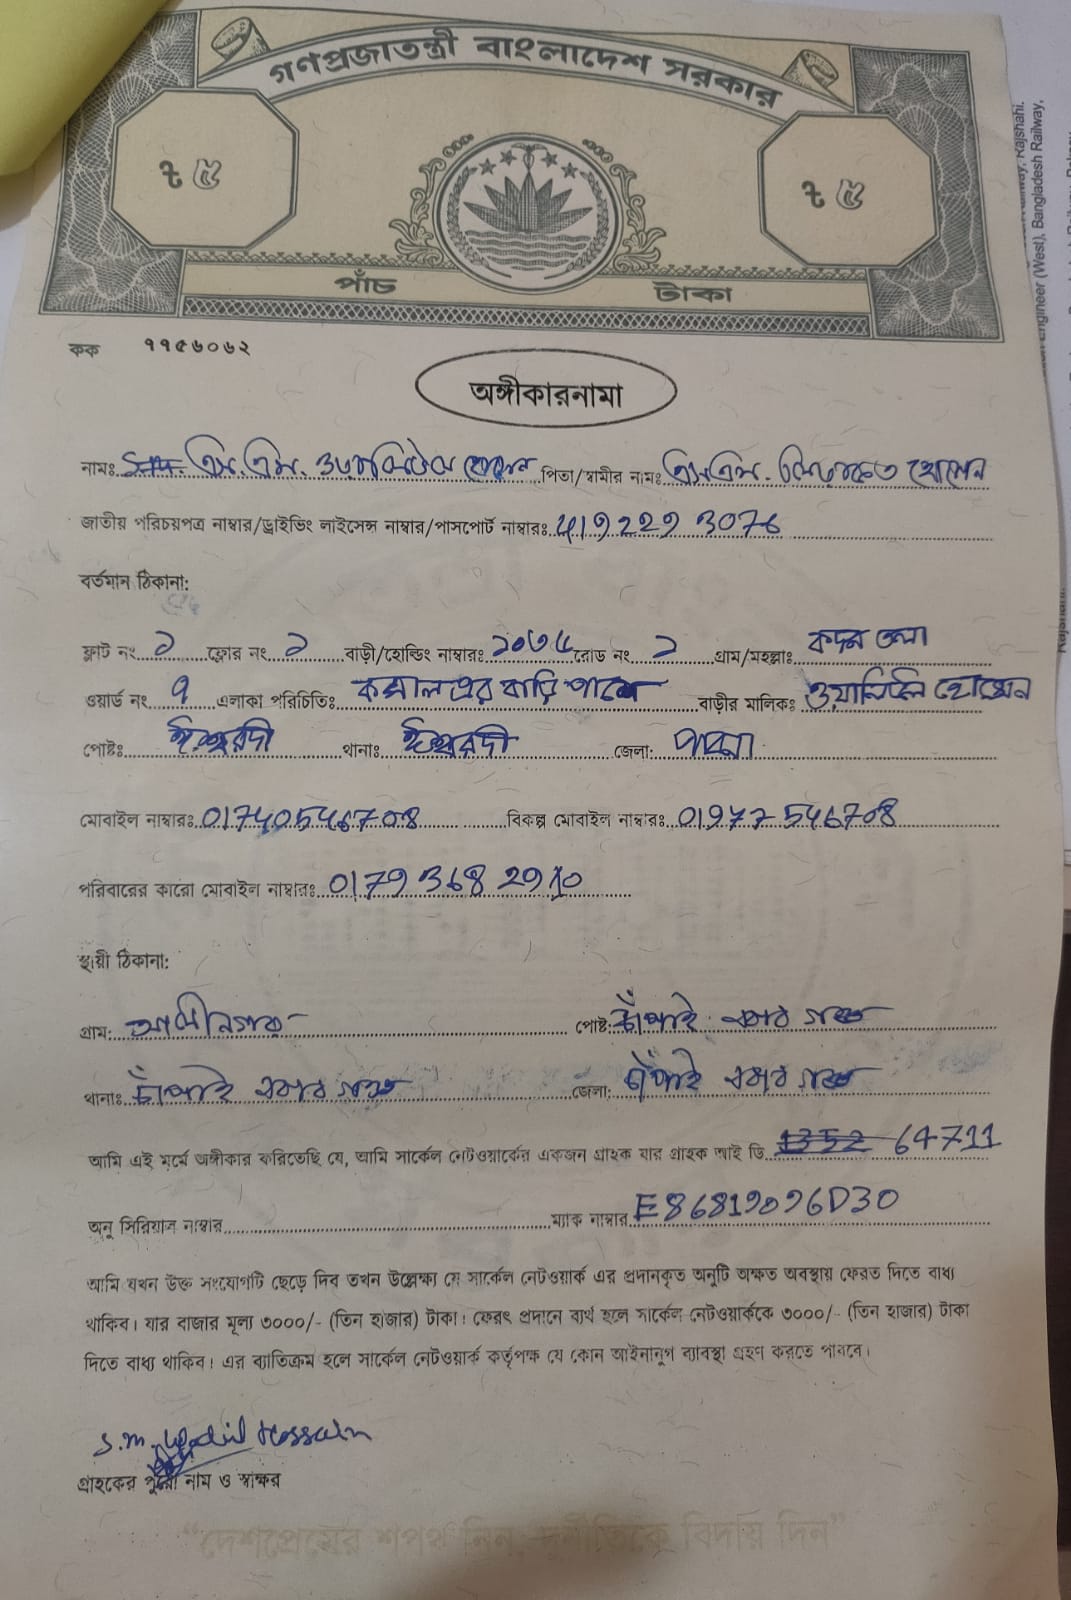 গণপ্রজাতন্ত্রী বাংলাদেশ সরকার
৳ ৫
৳ ৫
পাঁচ টাকা
কক ৭৭৫৬০৬২
অঙ্গীকারনামা
নামঃ এস.এম. পিতা/স্বামীর নামঃ এসএম. হোসেন
জাতীয় পরিচয়পত্র নাম্বার/ড্রাইভিং লাইসেন্স নাম্বার/পাসপোর্ট নাম্বারঃ 4192293076
বর্তমান ঠিকানা:
ফ্লাট নং ১ ফ্লোর নং ১ বাড়ী/হোল্ডিং নাম্বারঃ রোড নং ১ গ্রাম/মহল্লাঃ কদম তলা
ওয়ার্ড নং ৭ এলাকা পরিচিতিঃ কামাল এর বাড়ি পাশে বাড়ীর মালিকঃ হোসেন
পোষ্টঃ ঈশ্বরদী থানাঃ ঈশ্বরদী জেলা: পাবনা
মোবাইল নাম্বারঃ 01740546708 বিকল্প মোবাইল নাম্বারঃ 01977546708
পরিবারের কারো মোবাইল নাম্বারঃ 0179368 29
স্থায়ী ঠিকানা:
গ্রাম: আলীনগর পোষ্ট: চাঁপাই নবাব গঞ্জ
থানাঃ চাঁপাই নবাব গঞ্জ জেলা: চাঁপাই নবাব গঞ্জ
আমি এই মর্মে অঙ্গীকার করিতেছি যে, আমি সার্কেল নেটওয়ার্কের একজন গ্রাহক যার গ্রাহক আই ডি 1352 64711
অনু সিরিয়াল নাম্বার ম্যাক নাম্বার E86819096D30
আমি যখন উক্ত সংযোগটি ছেড়ে দিব তখন উল্লেক্ষা যে সার্কেল নেটওয়ার্ক এর প্রদানকৃত অনুটি অক্ষত অবস্থায় ফেরত দিতে বাধ্য
থাকিব। যার বাজার মূল্য ৩০০০/- (তিন হাজার) টাকা। ফেরৎ প্রদানে ব্যর্থ হলে সার্কেল নেটওয়ার্ককে ৩০০০/- (তিন হাজার) টাকা
দিতে বাধ্য থাকিব। এর ব্যাতিক্রম হলে সার্কেল নেটওয়ার্ক কর্তৃপক্ষ যে কোন আইনানুগ ব্যাবস্থা গ্রহণ করতে পারবে।
S.M. Hossain
গ্রাহকের পুরো নাম ও স্বাক্ষর
"দেশপ্রেমের শপথ নিন, দুর্নীতিকে বিদায় দিন"
Engineer (West), Bangladesh Railway,
Railway, Rajshahi.
Rajshahi.